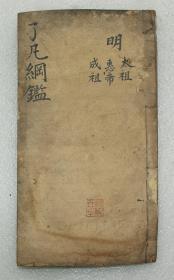 明
太祖
惠帝
成祖
了凡綱鑑